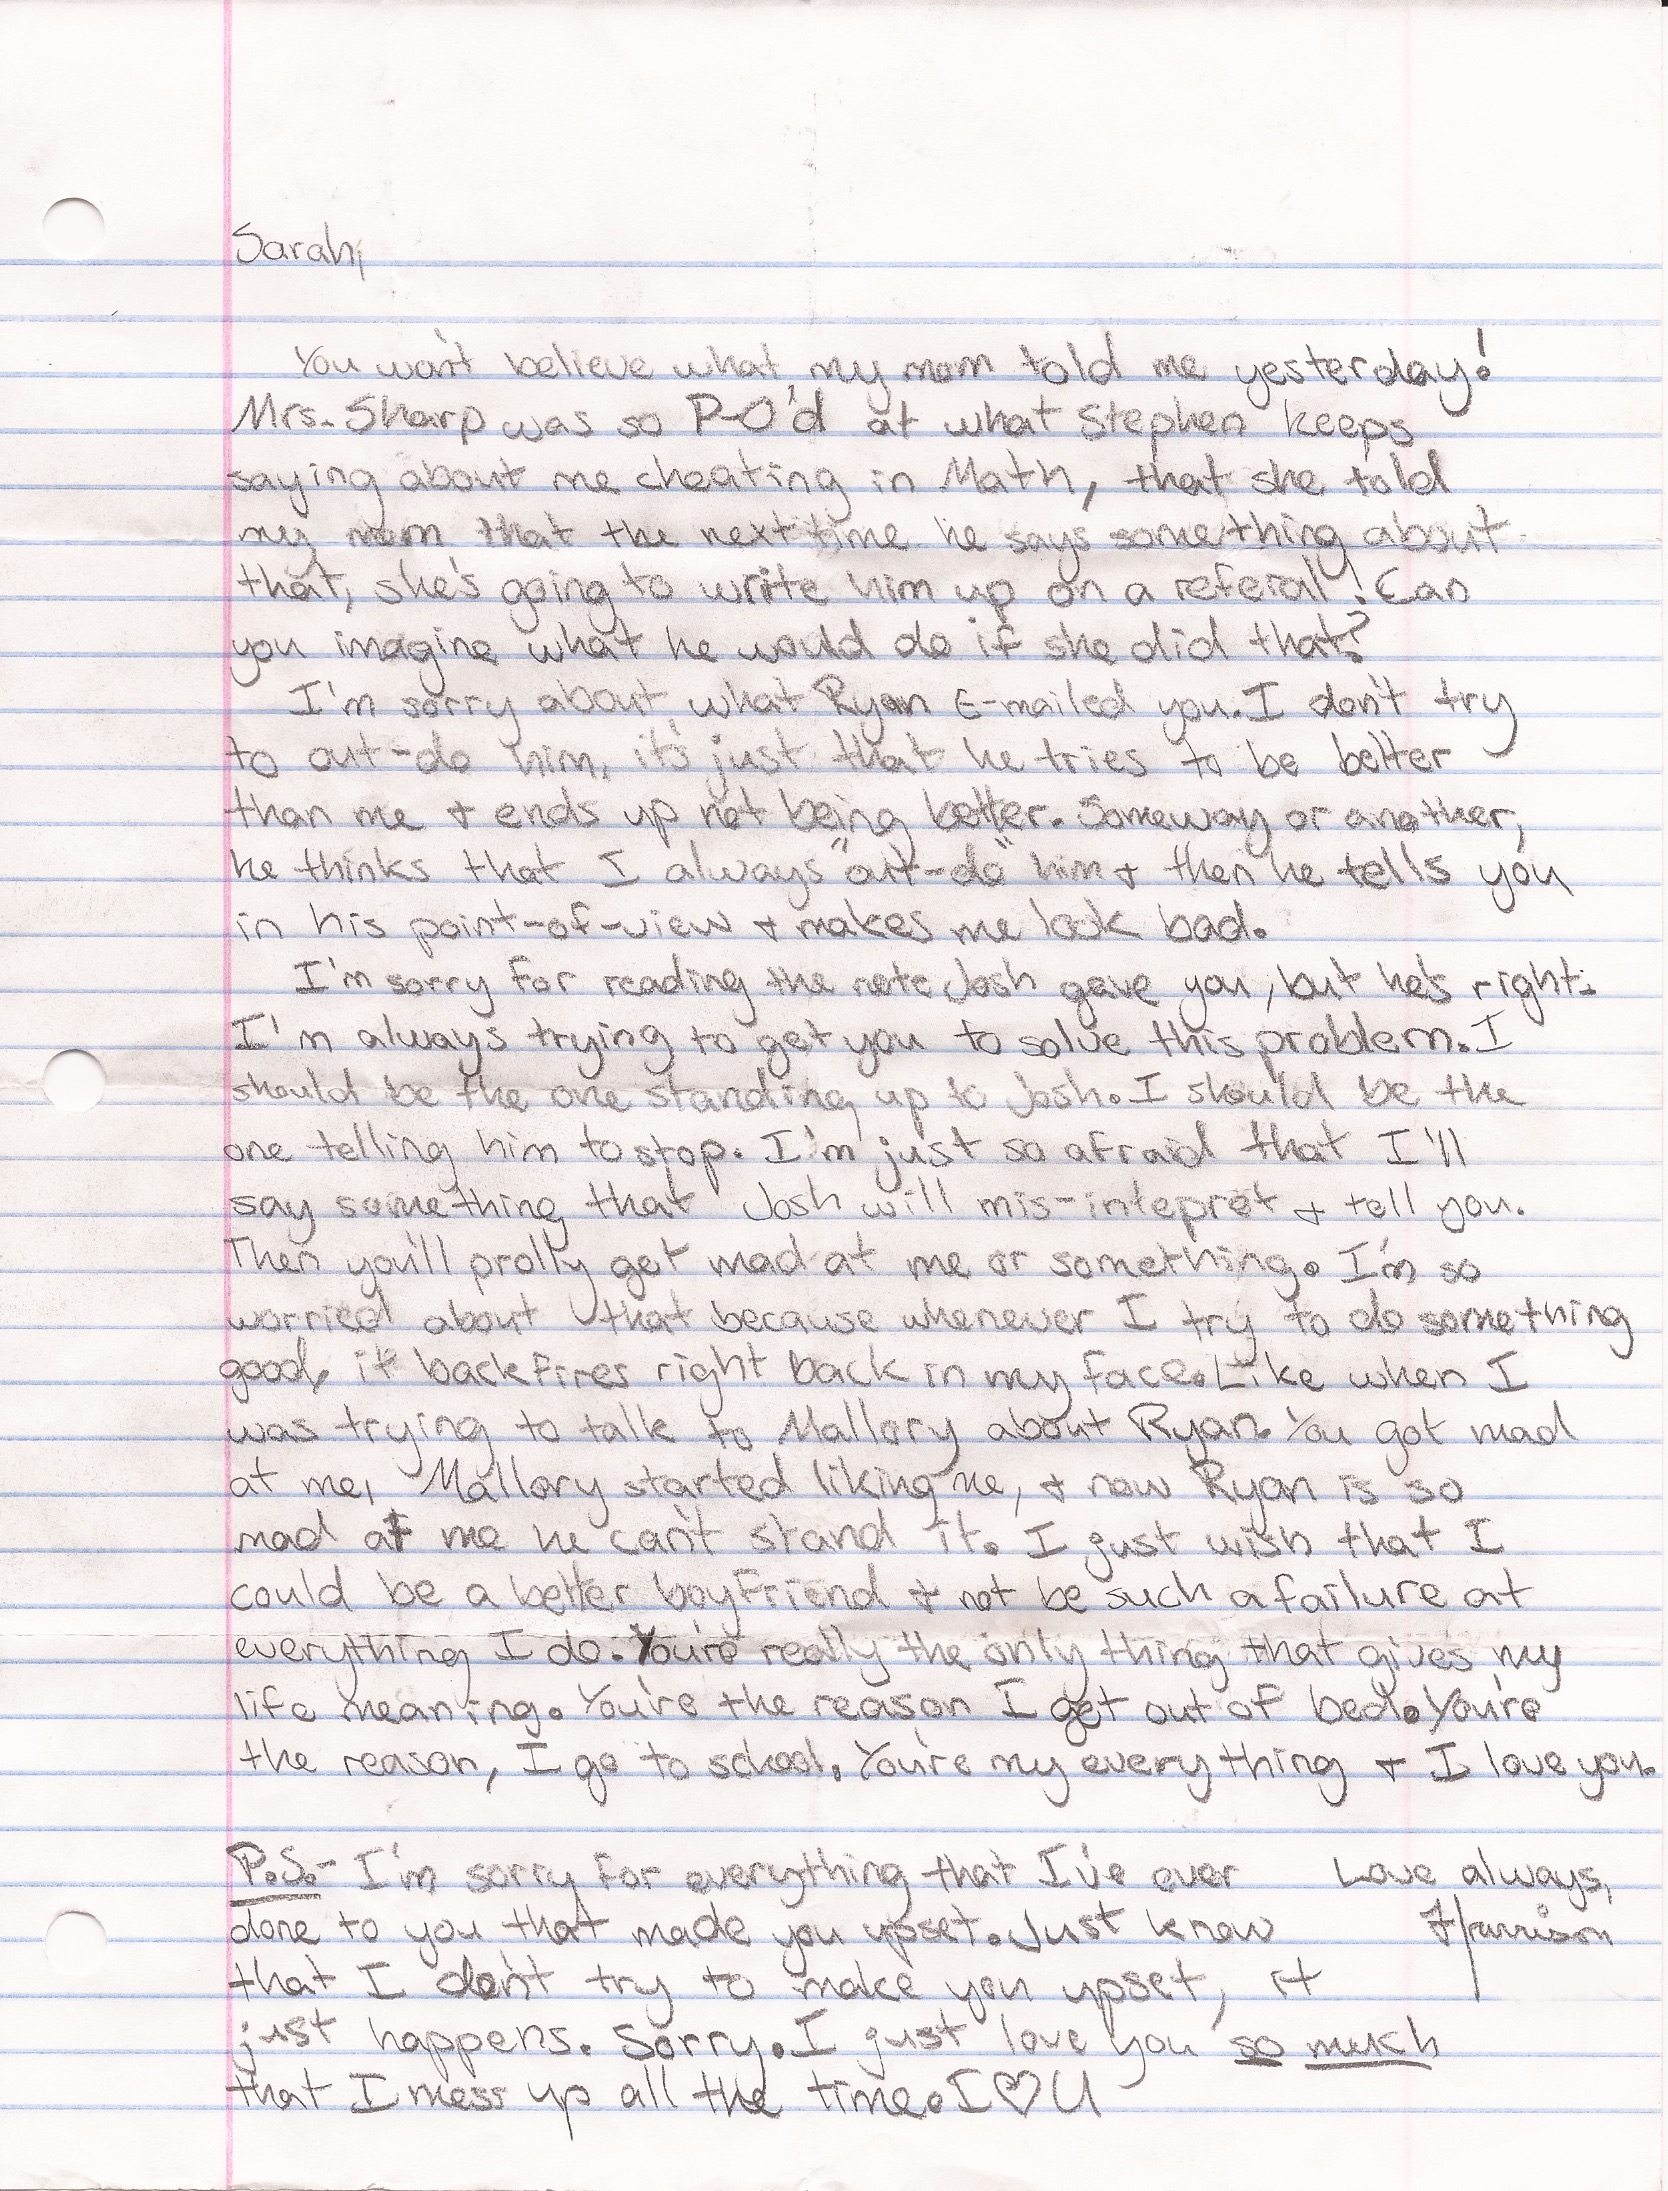 Sarah,
You won't believe what my mom told me yesterday!
Mrs. Sharp was so P-O'd at what Stephen keeps
saying about me cheating in Math, that she told
my mom that the next time he says something about
that, she's going to write him up on a referal! Can
you imagine what he would do if she did that?
I'm sorry about what Ryan E-mailed you. I don't try
to out-do him, it's just that he tries to be better
than me & ends up not being better. Someway or another,
he thinks that I always "out-do" him & then he tells you
in his point-of-view & makes me look bad.
I'm sorry for reading the note Josh gave you, but he's right.
I'm always trying to get you to solve this problem. I
should be the one standing up to Josh. I should be the
one telling him to stop. I'm just so afraid that I'll
say something that Josh will mis-intepret & tell you.
Then you'll prolly get mad at me or something. I'm so
worried about that because whenever I try to do something
good, it backfires right back in my face. Like when I
was trying to talk to Mallory about Ryan. You got mad
at me, Mallory started liking me, & now Ryan is so
mad at me he can't stand it. I just wish that I
could be a better boyfriend & not be such a failure at
everything I do. You're really the only thing that gives my
life meaning. You're the reason I get out of bed. You're
the reason, I go to school. You're my everything & I love you.
P.S.- I'm sorry for everything that I've ever
done to you that made you upset. Just know
that I don't try to make you upset, it
just happens. Sorry. I just love you so much
that I mess up all the time. I ♡ U
Love always,
Harrison